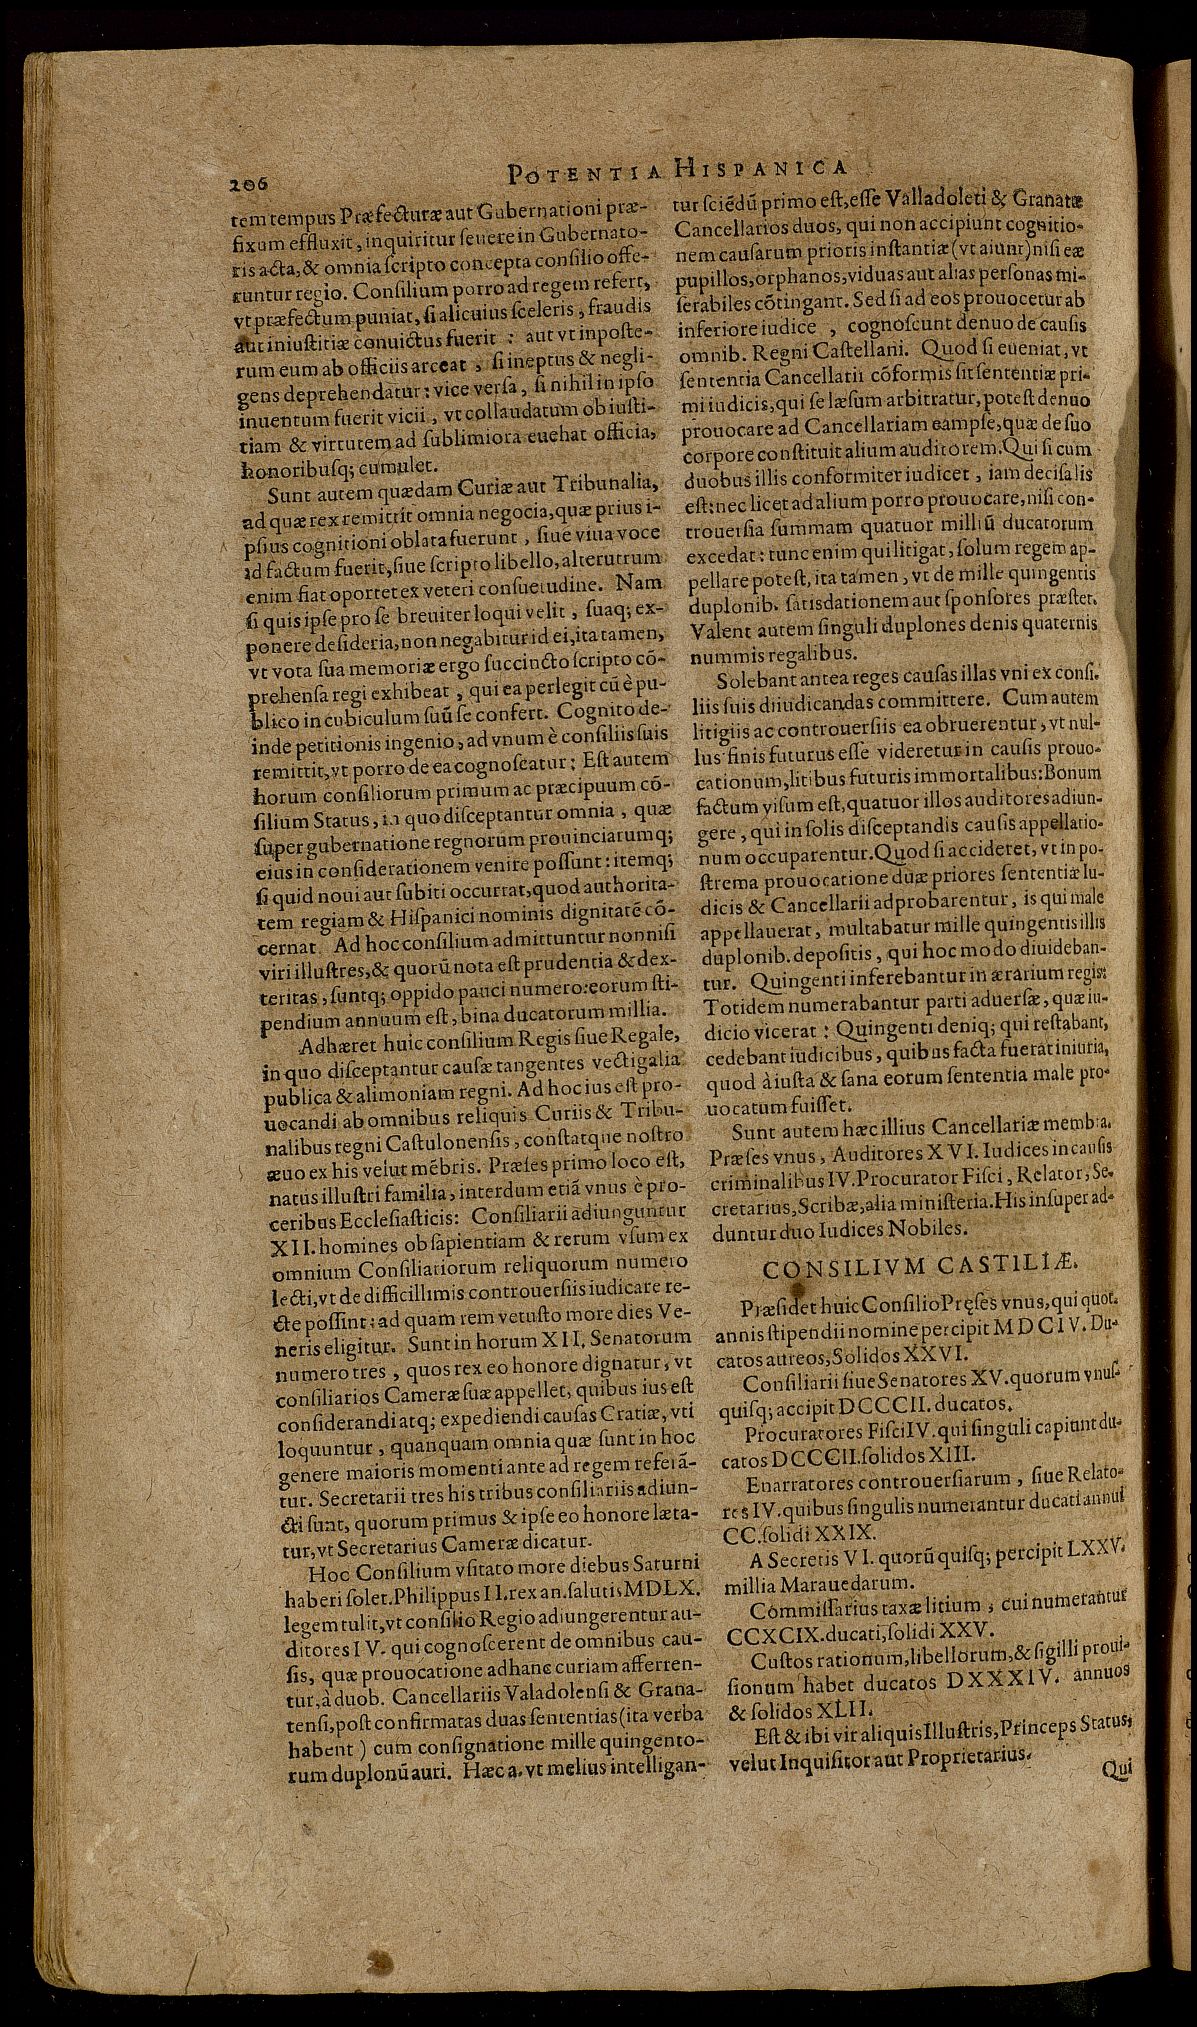 206
POTENTIA HISPANICA
tem tempus Præfecturæ aut Gubernationi præ-
fixum effluxit, inquiritur ſeuere in Gubernato-
ris acta, & omnia ſcripto concepta conſilio offe-
runtur regio. Conſilium porro ad regem refert,
vt præfectum puniat, ſi alicuius ſceleris, fraudis
aut iniuſtitiæ conuictus fuerit : aut vt inpoſte-
rum eum ab officiis arceat, ſi ineptus & negli-
gens deprehendatur: vice verſa, ſi nihil in ipſo
inuentum fuerit vicii, vt collaudatum ob iuſti-
tiam & virtutem ad ſublimiora euehat officia,
honoribuſq; cumulet.
Sunt autem quædam Curiæ aut Tribunalia,
ad quæ rex remittit omnia negocia, quæ prius i-
pſius cognitioni oblata fuerunt, ſiue viua voce
id factum fuerit, ſiue ſcripto libello, alterutrum
enim fiat oportet ex veteri conſuetudine. Nam
ſi quis ipſe pro ſe breuiter loqui velit, ſuaq; ex-
ponere deſideria, non negabitur id ei, ita tamen,
vt vota ſua memoriæ ergo ſuccincto ſcripto cõ-
prehenſa regi exhibeat, qui ea perlegit cũ è pu-
blico in cubiculum ſuũ ſe confert. Cognito de-
inde petitionis ingenio, ad vnum è conſiliis ſuis
remittit, vt porro de ea cognoſcatur: Eſt autem
horum conſiliorum primum ac præcipuum cõ-
ſilium Status, in quo diſceptantur omnia, quæ
ſuper gubernatione regnorum prouinciarumq;
eius in conſiderationem venire poſſunt: itemq;
ſi quid noui aut ſubiti occurrat, quod authorita-
tem regiam & Hiſpanici nominis dignitatẽ cõ-
cernat. Ad hoc conſilium admittuntur nonniſi
viri illuſtres, & quorũ nota eſt prudentia & dex-
teritas, ſuntq; oppido pauci numero: eorum ſti-
pendium annuum eſt, bina ducatorum millia.
Adhæret huic conſilium Regis ſiue Regale,
in quo diſceptantur cauſæ tangentes vectigalia
publica & alimoniam regni. Ad hoc ius eſt pro-
uocandi ab omnibus reliquis Curiis & Tribu-
nalibus regni Caſtulonenſis, conſtatque noſtro
æuo ex his velut mẽbris. Præſes primo loco eſt,
natus illuſtri familia, interdum etiã vnus è pro-
ceribus Eccleſiaſticis: Conſiliarii adiunguntur
XII. homines ob ſapientiam & rerum vſum ex
omnium Conſiliariorum reliquorum numero
lecti, vt de difficillimis controuerſiis iudicare re-
cte poſſint: ad quam rem vetuſto more dies Ve-
neris eligitur. Sunt in horum XII. Senatorum
numero tres, quos rex eo honore dignatur, vt
conſiliarios Cameræ ſuæ appellet, quibus ius eſt
conſiderandi atq; expediendi cauſas Cratiæ, vti
loquuntur, quanquam omnia quæ ſunt in hoc
genere maioris momenti ante ad regem referã-
tur. Secretarii tres his tribus conſiliariis adiun-
cti ſunt, quorum primus & ipſe eo honore læta-
tur, vt Secretarius Cameræ dicatur.
Hoc Conſilium vſitato more diebus Saturni
haberi ſolet. Philippus II. rex an. ſalutis MDLX.
legem tulit, vt conſilio Regio adiungerentur au-
ditores IV. qui cognoſcerent de omnibus cau-
ſis, quæ prouocatione ad hanc curiam afferren-
tur, à duob. Cancellariis Valadolenſi & Grana-
tenſi, poſt confirmatas duas ſententias (ita verba
habent) cum conſignatione mille quingento-
rum duplonũ auri. Hæc a. vt melius intelligan-
tur ſciẽdũ primo eſt, eſſe Valladoleti & Granatæ
Cancellarios duos, qui non accipiunt cognitio-
nem cauſarum prioris inſtantiæ (vt aiunt) niſi eæ
pupillos, orphanos, viduas aut alias perſonas mi-
ſerabiles cõtingant. Sed ſi ad eos prouocetur ab
inferiore iudice , cognoſcunt denuo de cauſis
omnib. Regni Caſtellani. Quod ſi eueniat, vt
ſententia Cancellarii cõformis ſit ſententiæ pri-
mi iudicis, qui ſe læſum arbitratur, poteſt denuo
prouocare ad Cancellariam eampſe, quæ de ſuo
corpore conſtituit alium auditorem. Qui ſi cum
duobus illis conformiter iudicet, iam deciſa lis
eſt: nec licet ad alium porro prouocare, niſi con-
trouerſia ſummam quatuor milliũ ducatorum
excedat: tunc enim qui litigat, ſolum regem ap-
pellare poteſt, ita tamen, vt de mille quingentis
duplonib. ſatisdationem aut ſponſores præſtet.
Valent autem ſinguli duplones denis quaternis
nummis regalibus.
Solebant antea reges cauſas illas vni ex conſi-
liis ſuis diiudicandas committere. Cum autem
litigiis ac controuerſiis ea obruerentur, vt nul-
lus finis futurus eſſe videretur in cauſis prouo-
cationum, litibus futuris immortalibus: Bonum
factum viſum eſt, quatuor illos auditores adiun-
gere, qui in ſolis diſceptandis cauſis appellatio-
num occuparentur. Quod ſi accideret, vt in po-
ſtrema prouocatione duæ priores ſententiæ Iu-
dicis & Cancellarii adprobarentur, is qui male
appellauerat, multabatur mille quingentis illis
duplonib. depoſitis, qui hoc modo diuideban-
tur. Quingenti inferebantur in ærarium regis:
Totidem numerabantur parti aduerſæ, quæ iu-
dicio vicerat : Quingenti deniq; qui reſtabant,
cedebant iudicibus, quibus facta fuerat iniuria,
quod à iuſta & ſana eorum ſententia male pro-
uocatum fuiſſet.
Sunt autem hæc illius Cancellariæ membra.
Præſes vnus, Auditores XVI. Iudices in cauſis
criminalibus IV. Procurator Fiſci, Relator, Se-
cretarius, Scribæ, alia miniſteria. His inſuper ad-
duntur duo Iudices Nobiles.
CONSILIVM CASTILIÆ.
Præſidet huic Conſilio Pręſes vnus, qui quot-
annis ſtipendii nomine percipit MDCIV. Du-
catos aureos, Solidos XXVI.
Conſiliarii ſiue Senatores XV. quorum vnuſ-
quiſq; accipit DCCCII. ducatos.
Procuratores Fiſci IV. qui ſinguli capiunt du-
catos DCCCII. ſolidos XIII.
Enarratores controuerſiarum, ſiue Relato-
res IV. quibus ſingulis numerantur ducati annui
CC. ſolidi XXIX.
A Secretis VI. quorũ quiſq; percipit LXXV.
millia Marauedarum.
Commiſſarius taxæ litium, cui numerantur
CCXCIX. ducati, ſolidi XXV.
Cuſtos rationum, libellorum, & ſigilli proui-
ſionum habet ducatos DXXXIV. annuos
& ſolidos XLII.
Eſt & ibi vir aliquis Illuſtris, Princeps Status,
velut Inquiſitor aut Proprietarius.
Qui